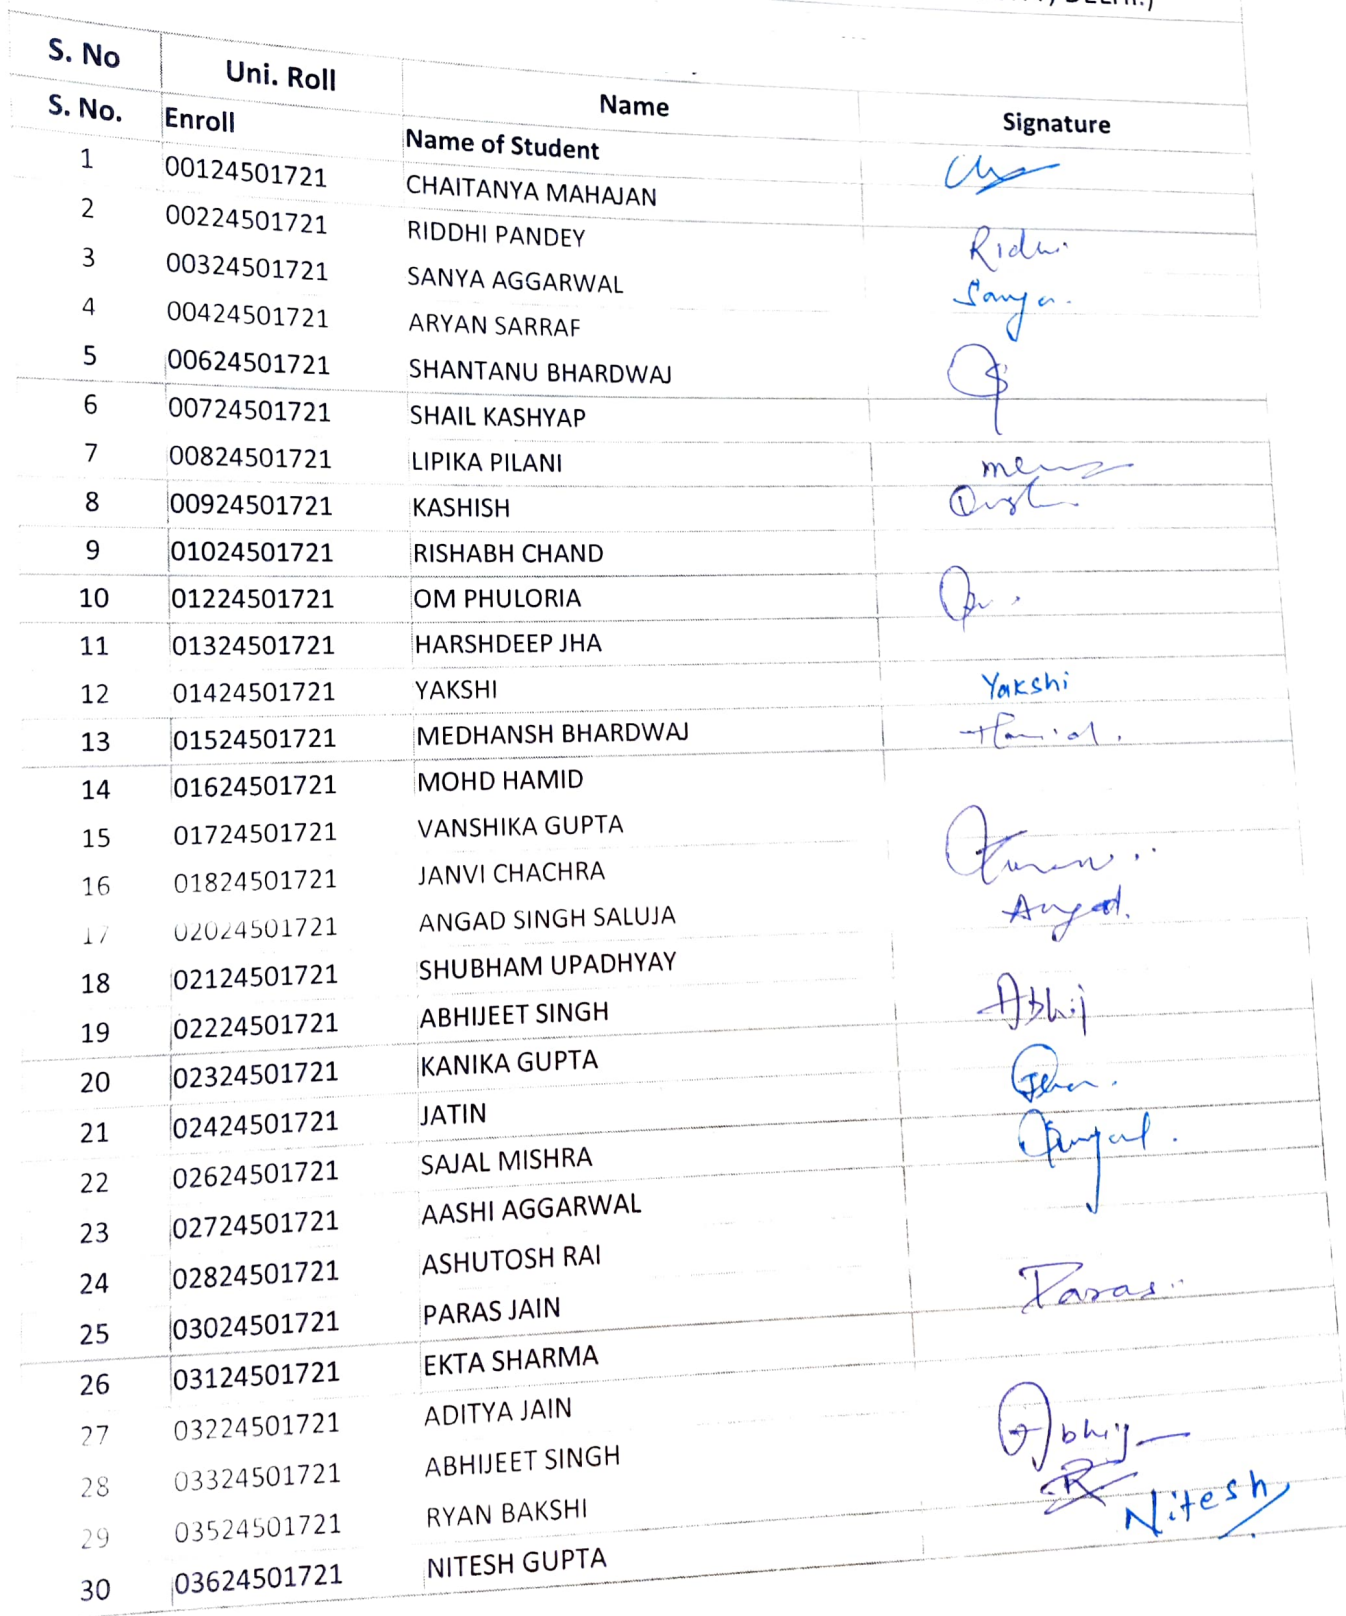 DELHI.)
S. No Uni. Roll Name Signature
S. No. Enroll Name of Student
1 00124501721 CHAITANYA MAHAJAN
2 00224501721 RIDDHI PANDEY Ridhi
3 00324501721 SANYA AGGARWAL Sanya.
4 00424501721 ARYAN SARRAF
5 00624501721 SHANTANU BHARDWAJ
6 00724501721 SHAIL KASHYAP
7 00824501721 LIPIKA PILANI
8 00924501721 KASHISH
9 01024501721 RISHABH CHAND
10 01224501721 OM PHULORIA
11 01324501721 HARSHDEEP JHA
12 01424501721 YAKSHI Yakshi
13 01524501721 MEDHANSH BHARDWAJ Hamid.
14 01624501721 MOHD HAMID
15 01724501721 VANSHIKA GUPTA
16 01824501721 JANVI CHACHRA
17 02024501721 ANGAD SINGH SALUJA Angad.
18 02124501721 SHUBHAM UPADHYAY
19 02224501721 ABHIJEET SINGH Abhij
20 02324501721 KANIKA GUPTA
21 02424501721 JATIN
22 02624501721 SAJAL MISHRA
23 02724501721 AASHI AGGARWAL
24 02824501721 ASHUTOSH RAI
25 03024501721 PARAS JAIN Paras..
26 03124501721 EKTA SHARMA
27 03224501721 ADITYA JAIN
28 03324501721 ABHIJEET SINGH Abhij
29 03524501721 RYAN BAKSHI R
30 03624501721 NITESH GUPTA Nitesh